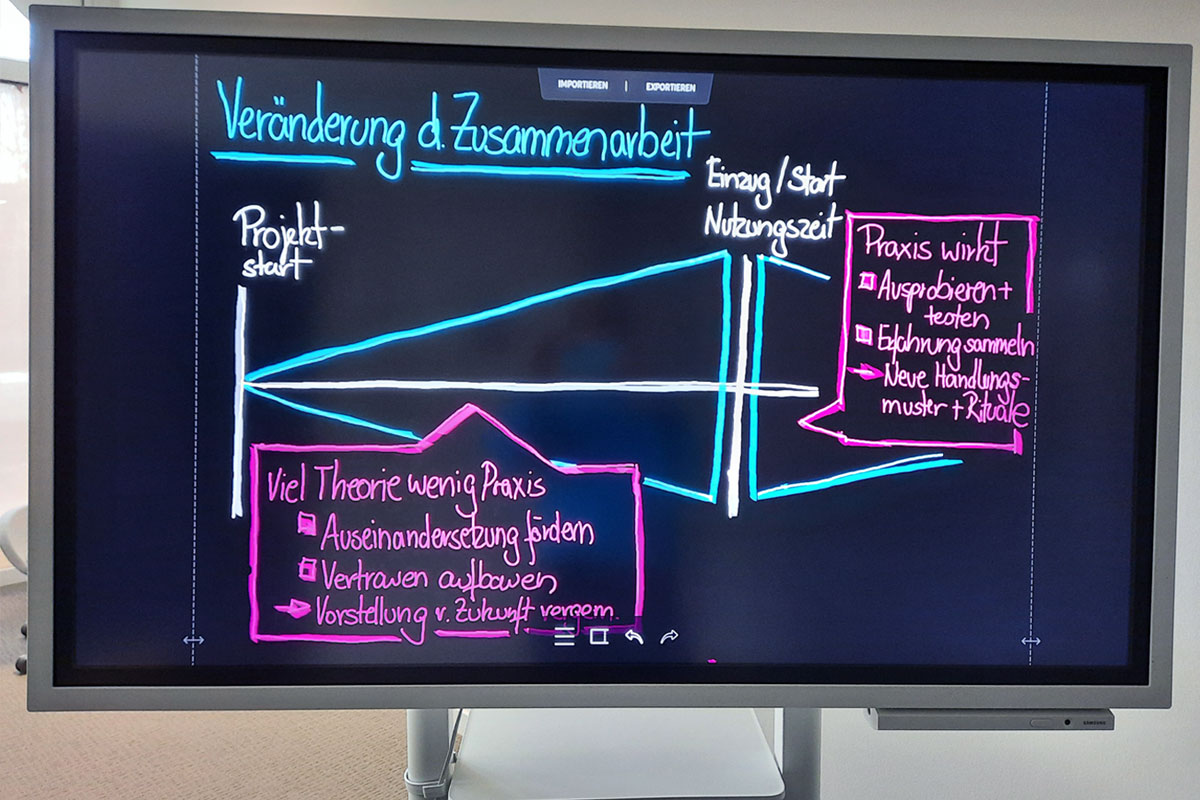 IMPORTIEREN | EXPORTIEREN
Veränderung d. Zusammenarbeit
Projekt-
start
Einzug / Start
Nutzungszeit
Praxis wirkt
Ausprobieren +
testen
Erfahrung sammeln
Neue Handlungs-
muster + Rituale
Viel Theorie wenig Praxis
Auseinandersetzung fördern
Vertrauen aufbauen
Vorstellung v. Zukunft vergem.
SAMSUNG